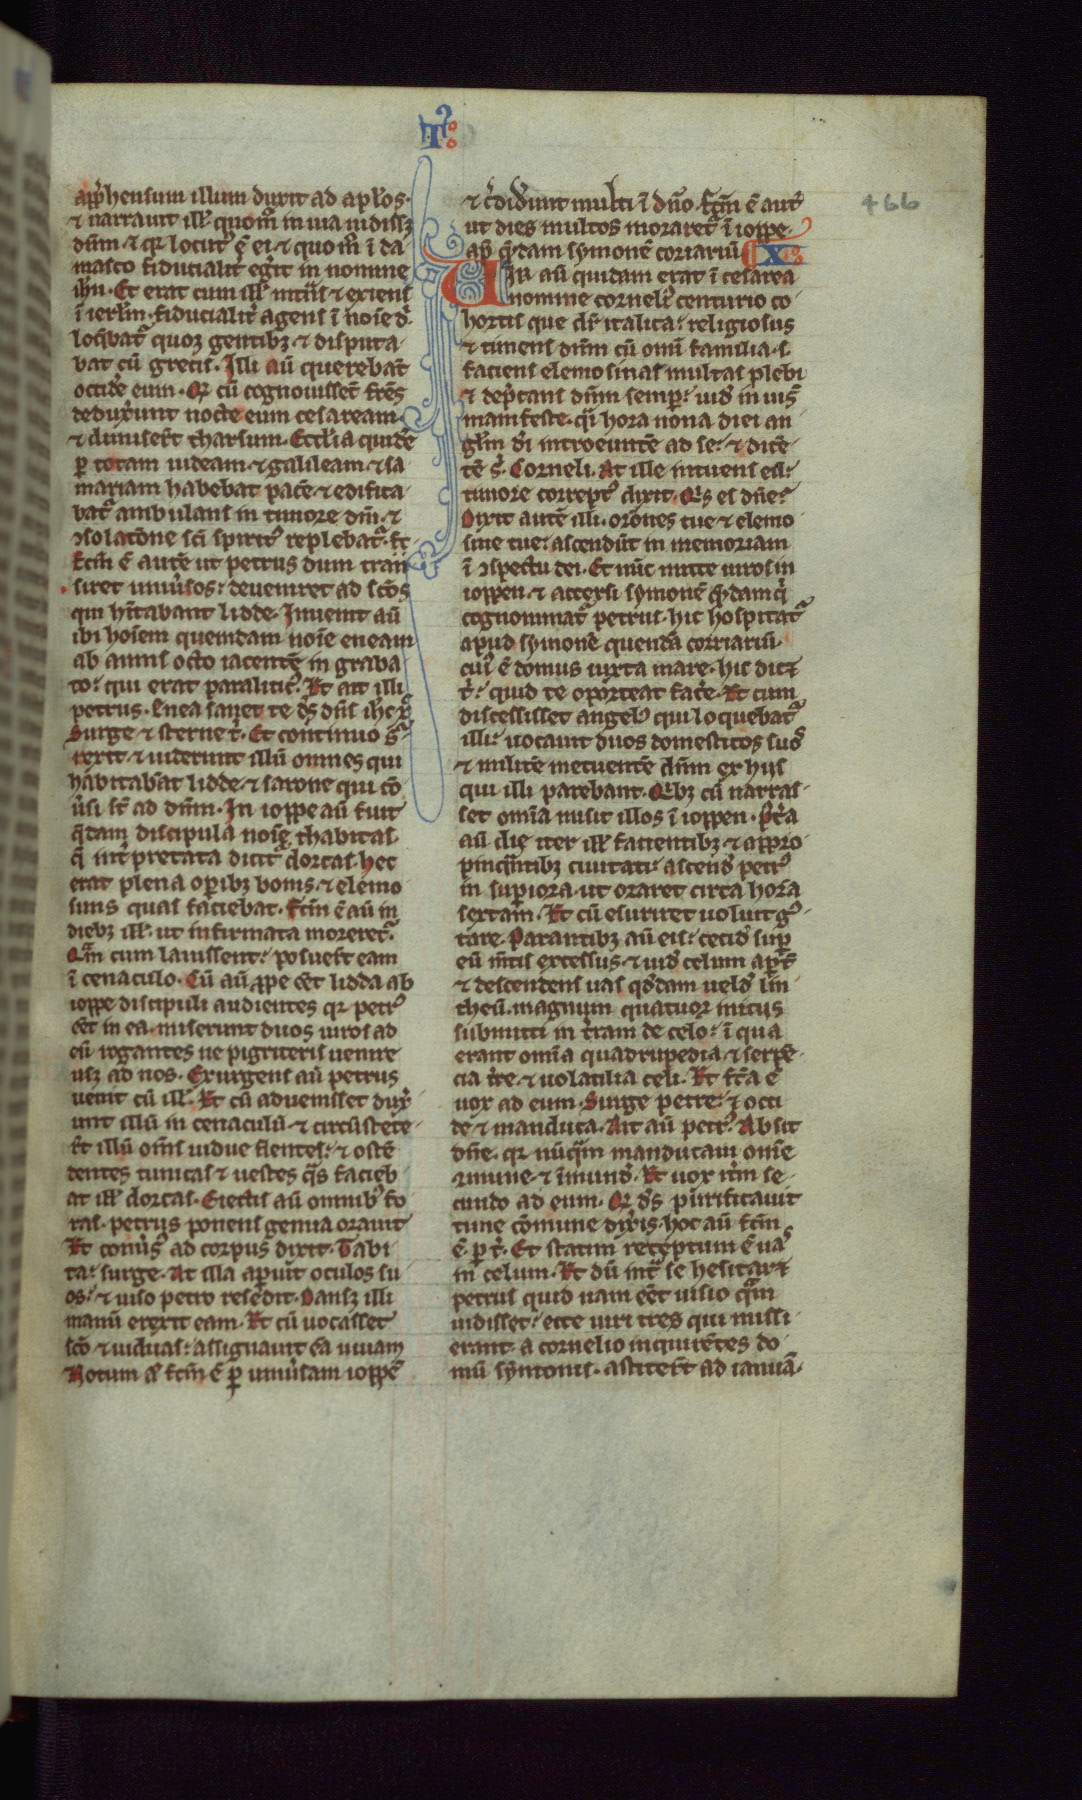 T᷒
app̄hensum illum duxit ad ap̄los·
⁊ narrauit ill̄ quom̄ in uia uidissꝫ
dn̄m ⁊ qꝛ locut᷒ ē ei ⁊ quom̄ ī da
masco fiducialit̄ eḡit in nomine
ih̄u· Et erat cum ill̄ int̄ns ⁊ exiens
ī ier̄lm· fiducialit̄ agens ī nōie d̄·
loq̄bat᷒ quoꝫ gentibꝫ ⁊ disputa
bat cū grecis· Illi aū querebāt
occid̄e eum· Qd̄ cū cognouissēt fr̄es
dedux̄unt nocte eum cesaream·
⁊ dimiser̄t tharsum· Eccl̄ia quidē
ꝑ totam iudeam ⁊ galileam ⁊ sa
mariam habebat pacē ⁊ edifica
bat᷒ ambulans in timore dn̄i ⁊
ↄsolatōne sc̄i spirit᷒ replebat᷒·
Fc̄m ē autē ut petrus dum tran
siret uniūsos: deueniret ad sc̄os
qui hītabant lidde· Inuenit aū
ibi hōiem quemdam nōie eneam
ab annis octo iacentē in graba
to: qui erat paralitic᷒· Et ait illi
petrus· Enea sanet te dn̄s ih̄c xp̄c
Surge ⁊ sterne t̄· Et continuo s᷒
rexit ⁊ uiderunt illū omnes qui
habitabāt lidde ⁊ sarone qui cō
ūsi st̄ ad dn̄m· In ioppe aū fuit
q̄dam discipula nōie thabitas
q̄ int̄pretata dicit᷒ dorcas· hec
erat plena oꝑibꝫ bonis ⁊ elemo
sinis quas faciebat· Fc̄m ē aū in
diebꝫ ill̄· ut infirmata moreret᷒·
Qm̄ cum lauissent: posuer̄t eam
ī cenaculo· Cū aū ꝓpe eēt lidda ab
ioppe discipuli audientes qꝛ petr᷒
eēt in ea miserunt duos uiros ad
eū rogantes ne pigriteris uenire
usꝫ ad nos· Exurgens aū petrus
uenit cū ill̄· Et cū aduenisset dux̄
unt illū in cenaculū ⁊ circūstete
r̄t illū om̄s uidue flentes: ⁊ ostē
dentes tunicas ⁊ uestes q̄s facieb
at ill̄ dorcas· Eiectis aū omnib᷒ fo
ras· petrus ponens genua orauit
Et conūs᷒ ad corpus dixit· Tabi
ta: surge· At illa aperuit oculos su
os: ⁊ uiso petro resedit· Dansꝫ illi
manū erexit eam· Et cū uocasset
sc̄os ⁊ uiduas: assignauit eā uiuam
Notum āt fc̄m ē ꝑ uniūsam ioppē
⁊ c̄diderunt multi ī dn̄o· Fc̄m ē aut̄
ut dies multos moraret᷒ ī ioppe·
ap̄ q̄dam symonē coriariū· X
Uir aū quidam erat ī cesarea
nomine corneli᷒ centurio co
hortis que dr̄ italica: religiosus
⁊ timens dn̄m cū omī familia s·
faciens elemosinas multas plebi
⁊ dep̄cans dn̄m semper: uid̄ in uis̄
manifeste· q̄i hora nona diei an
gl̄m d̄i introeuntē ad se: ⁊ dicē
tē s̄· Corneli· At ille intuens eū:
timore corrept᷒ dixit· Qis es dn̄e:
Dixit autē illi· orōnes tue ⁊ elemo
sine tue: ascendūt in memoriam
ī ↄspectu dei· Et nūc mitte uiros in
ioppen ⁊ accersi symonē q̄dam q̄
cognominat᷒ petrus· hic hospitat᷒
apud symonē quendā corriariū·
cui᷒ ē domus iuxta mare· hic dicꝫ
t̄: quid te oporteat facē· Et cum
discessisset angel᷒ qui loquebat᷒
illi: uocauit duos domesticos suos
⁊ militē metuentē dn̄m ex hijs
qui illi parebant· Qibꝫ cū narras
set om̄ia misit illos ī ioppen· Post̄a
aū die iter ill̄ facientibꝫ ⁊ appro
pinq̄ntibꝫ ciuitati: ascend̄ petr᷒
in superiora· ut oraret circa horā
sextam· Et cū esuriret uoluit g᷒
tare· Parantibꝫ aū eis: cecid̄ suꝑ
eū m̄tis excessus ⁊ uid̄ celum apt̄
⁊ descendens uas qd̄dam uelud̄ lin
theū· magnum quatuor initijs
submitti in t̄ram de celo: ī qua
erant om̄ia quadrupedia ⁊ serpē
cia t̄re ⁊ uolatilia celi· Et fc̄a ē
uox ad eum· Surge petre: ⁊ occi
de ⁊ manduca· Ait aū petr᷒· Absit
dn̄e· qꝛ nūq̄m manducaui om̄e
ↄmune ⁊ īmund̄· Et uox it̄m se
cundo ad eum· Qd̄ d̄s purificauit
tune cōmune dix̄is· hoc aū fc̄m
ē ꝑ t̄· Et statim receptum ē uas
in celum· Et dū int᷒ se hesitaret
petrus quid nam eēt uisio q̄m
uidisset: ecce uiri tres qui missi
erant a cornelio inquirētes do
mū symonis· astiter̄t ad ianuā·
466